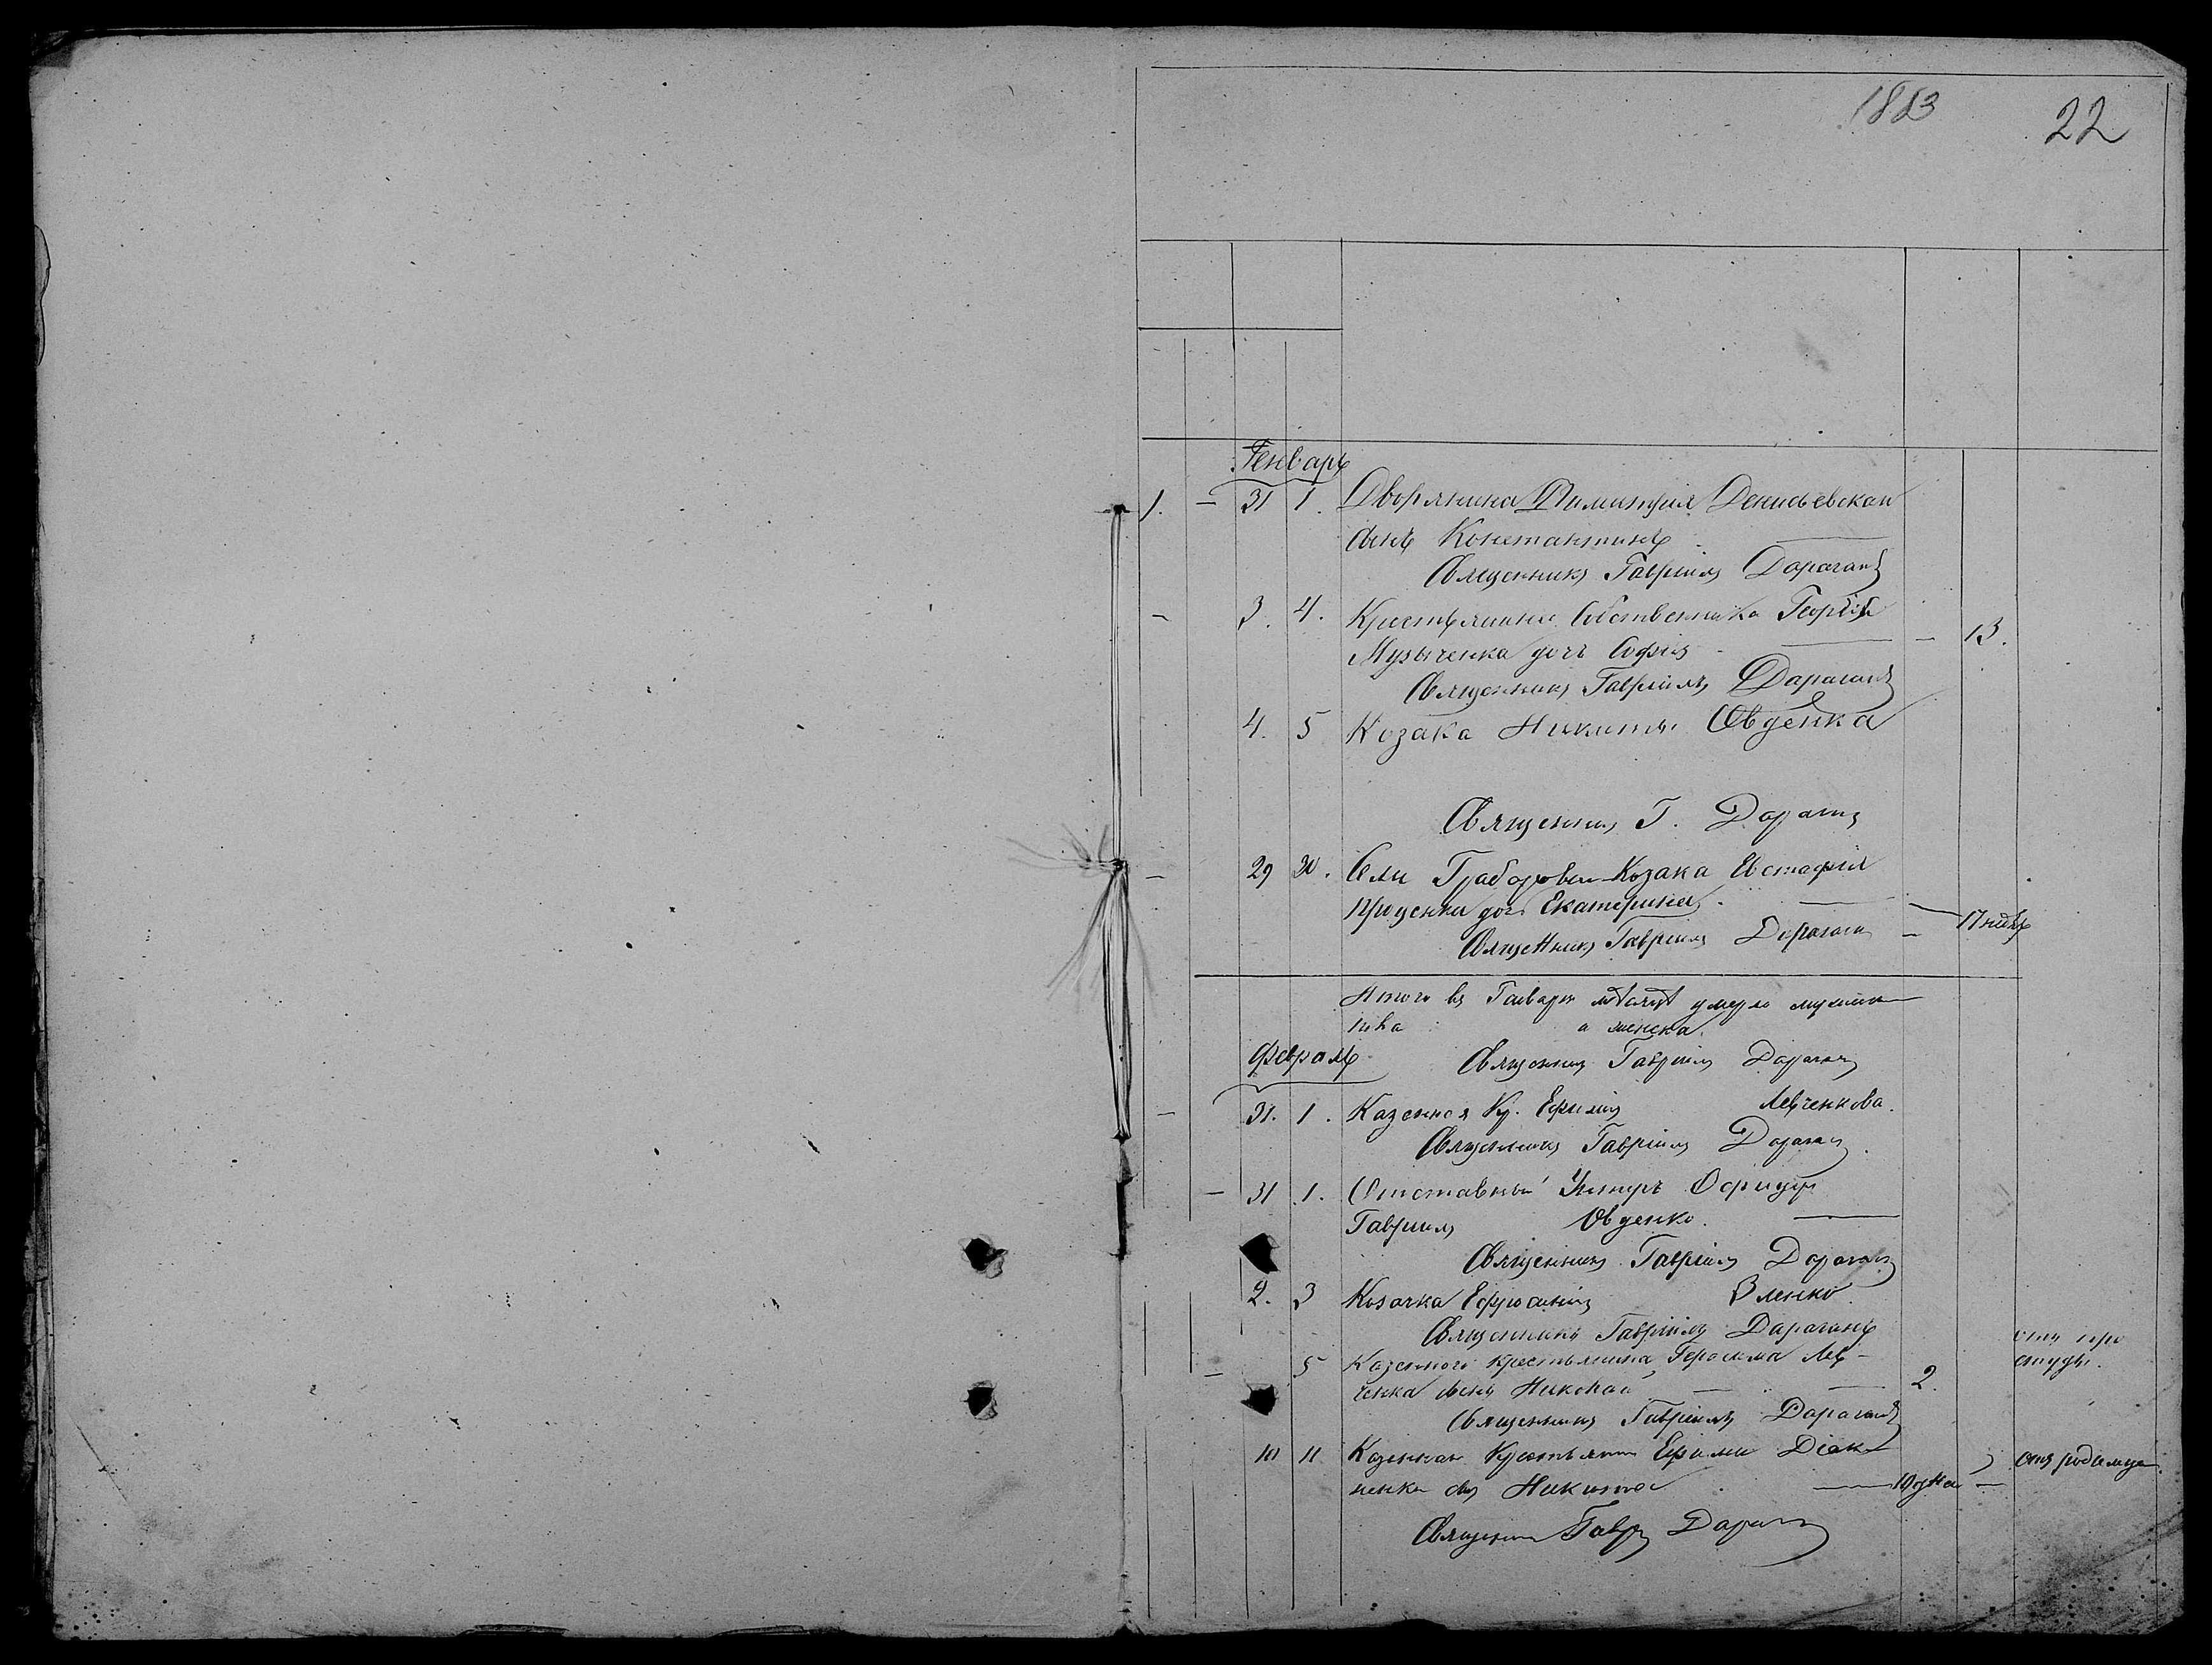 1883
22
Генварь
1. — 31 1. Дворянина Димитрія Денисьевскаго
сынъ Константинъ
Священникъ Гавріилъ Дараганъ
— 3. 4. Крестьянина Собственника Георгія
Музыченка дочь Софія — 13.
Священникъ Гавріилъ Дараганъ
4. 5 Козака Никиты Овденка
Священникъ Г. Дараганъ
— 29 30. Села Грабаровки Козака Евстафія
Проценка дочь Екатерина
Священникъ Гавріилъ Дараганъ —
Итого въ Генварѣ мѣсяцѣ умерло
а женска
Февраль
Священникъ Гавріилъ Дараганъ
— 31. 1. Казенная Кр. Левченкова.
Священникъ Гавріилъ Дараганъ
— 31 1. Отставный Унтеръ Офицеръ
Гавріилъ Овденко.
Священникъ Гавріилъ Дараганъ
2. 3 Козачка Ефросинія
Священникъ Гавріилъ Дараганъ
— 5 Казеннаго крестьянина Герасима Лев-
ченка сынъ Николай 2. отъ про
студы.
Священникъ Гавріилъ Дараганъ
10 11 Крестьянина Ефима
сынъ Никита 10 дней — отъ родимца
Священникъ Гавр Дараганъ